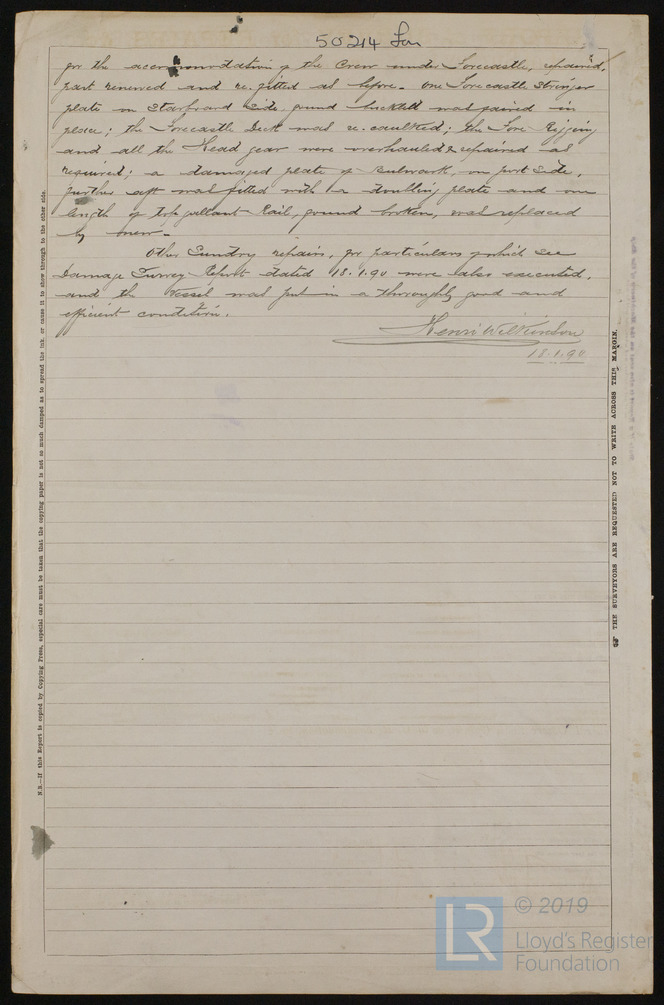 50214 Lon
for the accommodation of the Crew under Forecastle, repaired,
part renewed and re.fitted as before. One Forecastle Stringer
plate on Starboard Side, found buckled was faired in
place; the Forecastle Deck was re.caulked; the Fore Rigging
and all the Head gear were overhauled & repaired as
required; a damaged plate of Bulwark, on port side,
further aft was fitted with a doubling plate and one
length of topgallant Rail, found broken, was replaced
by new.
Other Sundry repairs, for particulars of which see
Damage Survey Report dated 18.1.90 were also executed,
and the Vessel was put in a thoroughly good and
efficient condition.
Henri Wilkinson
18.1.90
N.B.—If this Report is copied by Copying Press, especial care must be taken that the copying paper is not so much damped as to spread the ink, or cause it to show through to the other side.
THE SURVEYORS ARE REQUESTED NOT TO WRITE ACROSS THIS MARGIN.
LR
© 2019
Lloyd's Register
Foundation